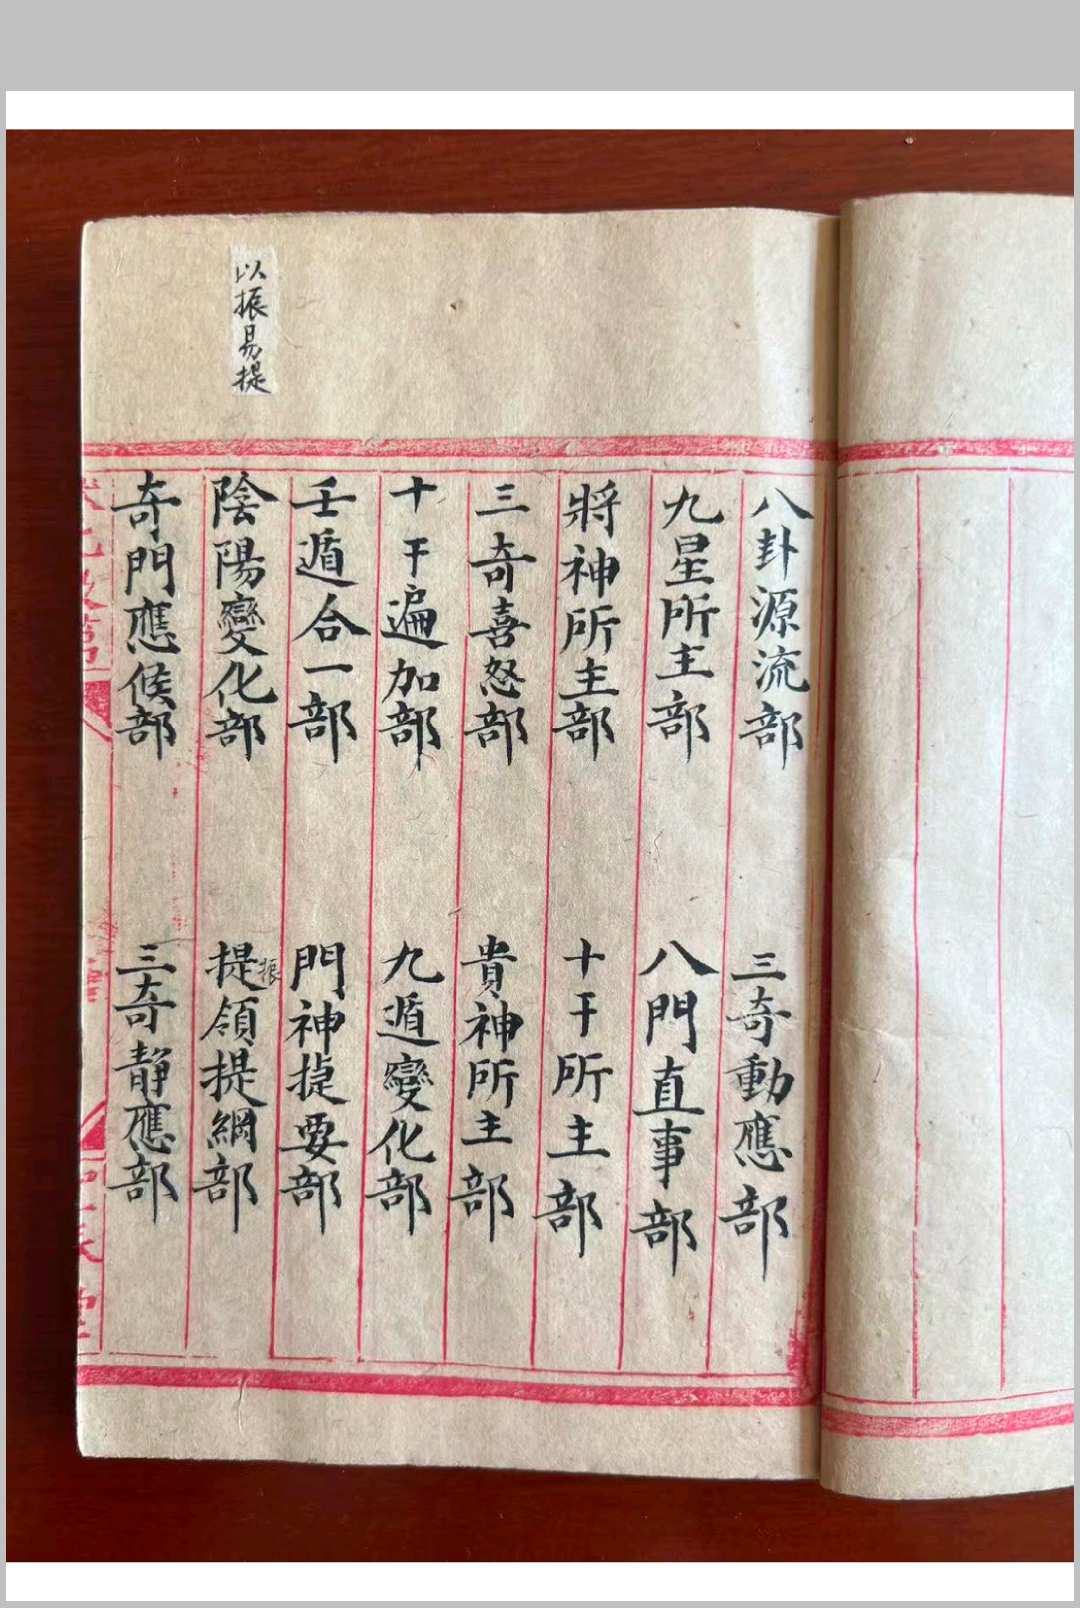 八卦源流部 三奇動應部
九星所主部 八門直事部
將神所主部 十干所主部
三奇喜怒部 貴神所主部
十干遍加部 九遁變化部
壬遁合一部 門神捷要部
陰陽變化部 提振領提綱部
奇門應候部 三奇靜應部
以振易提